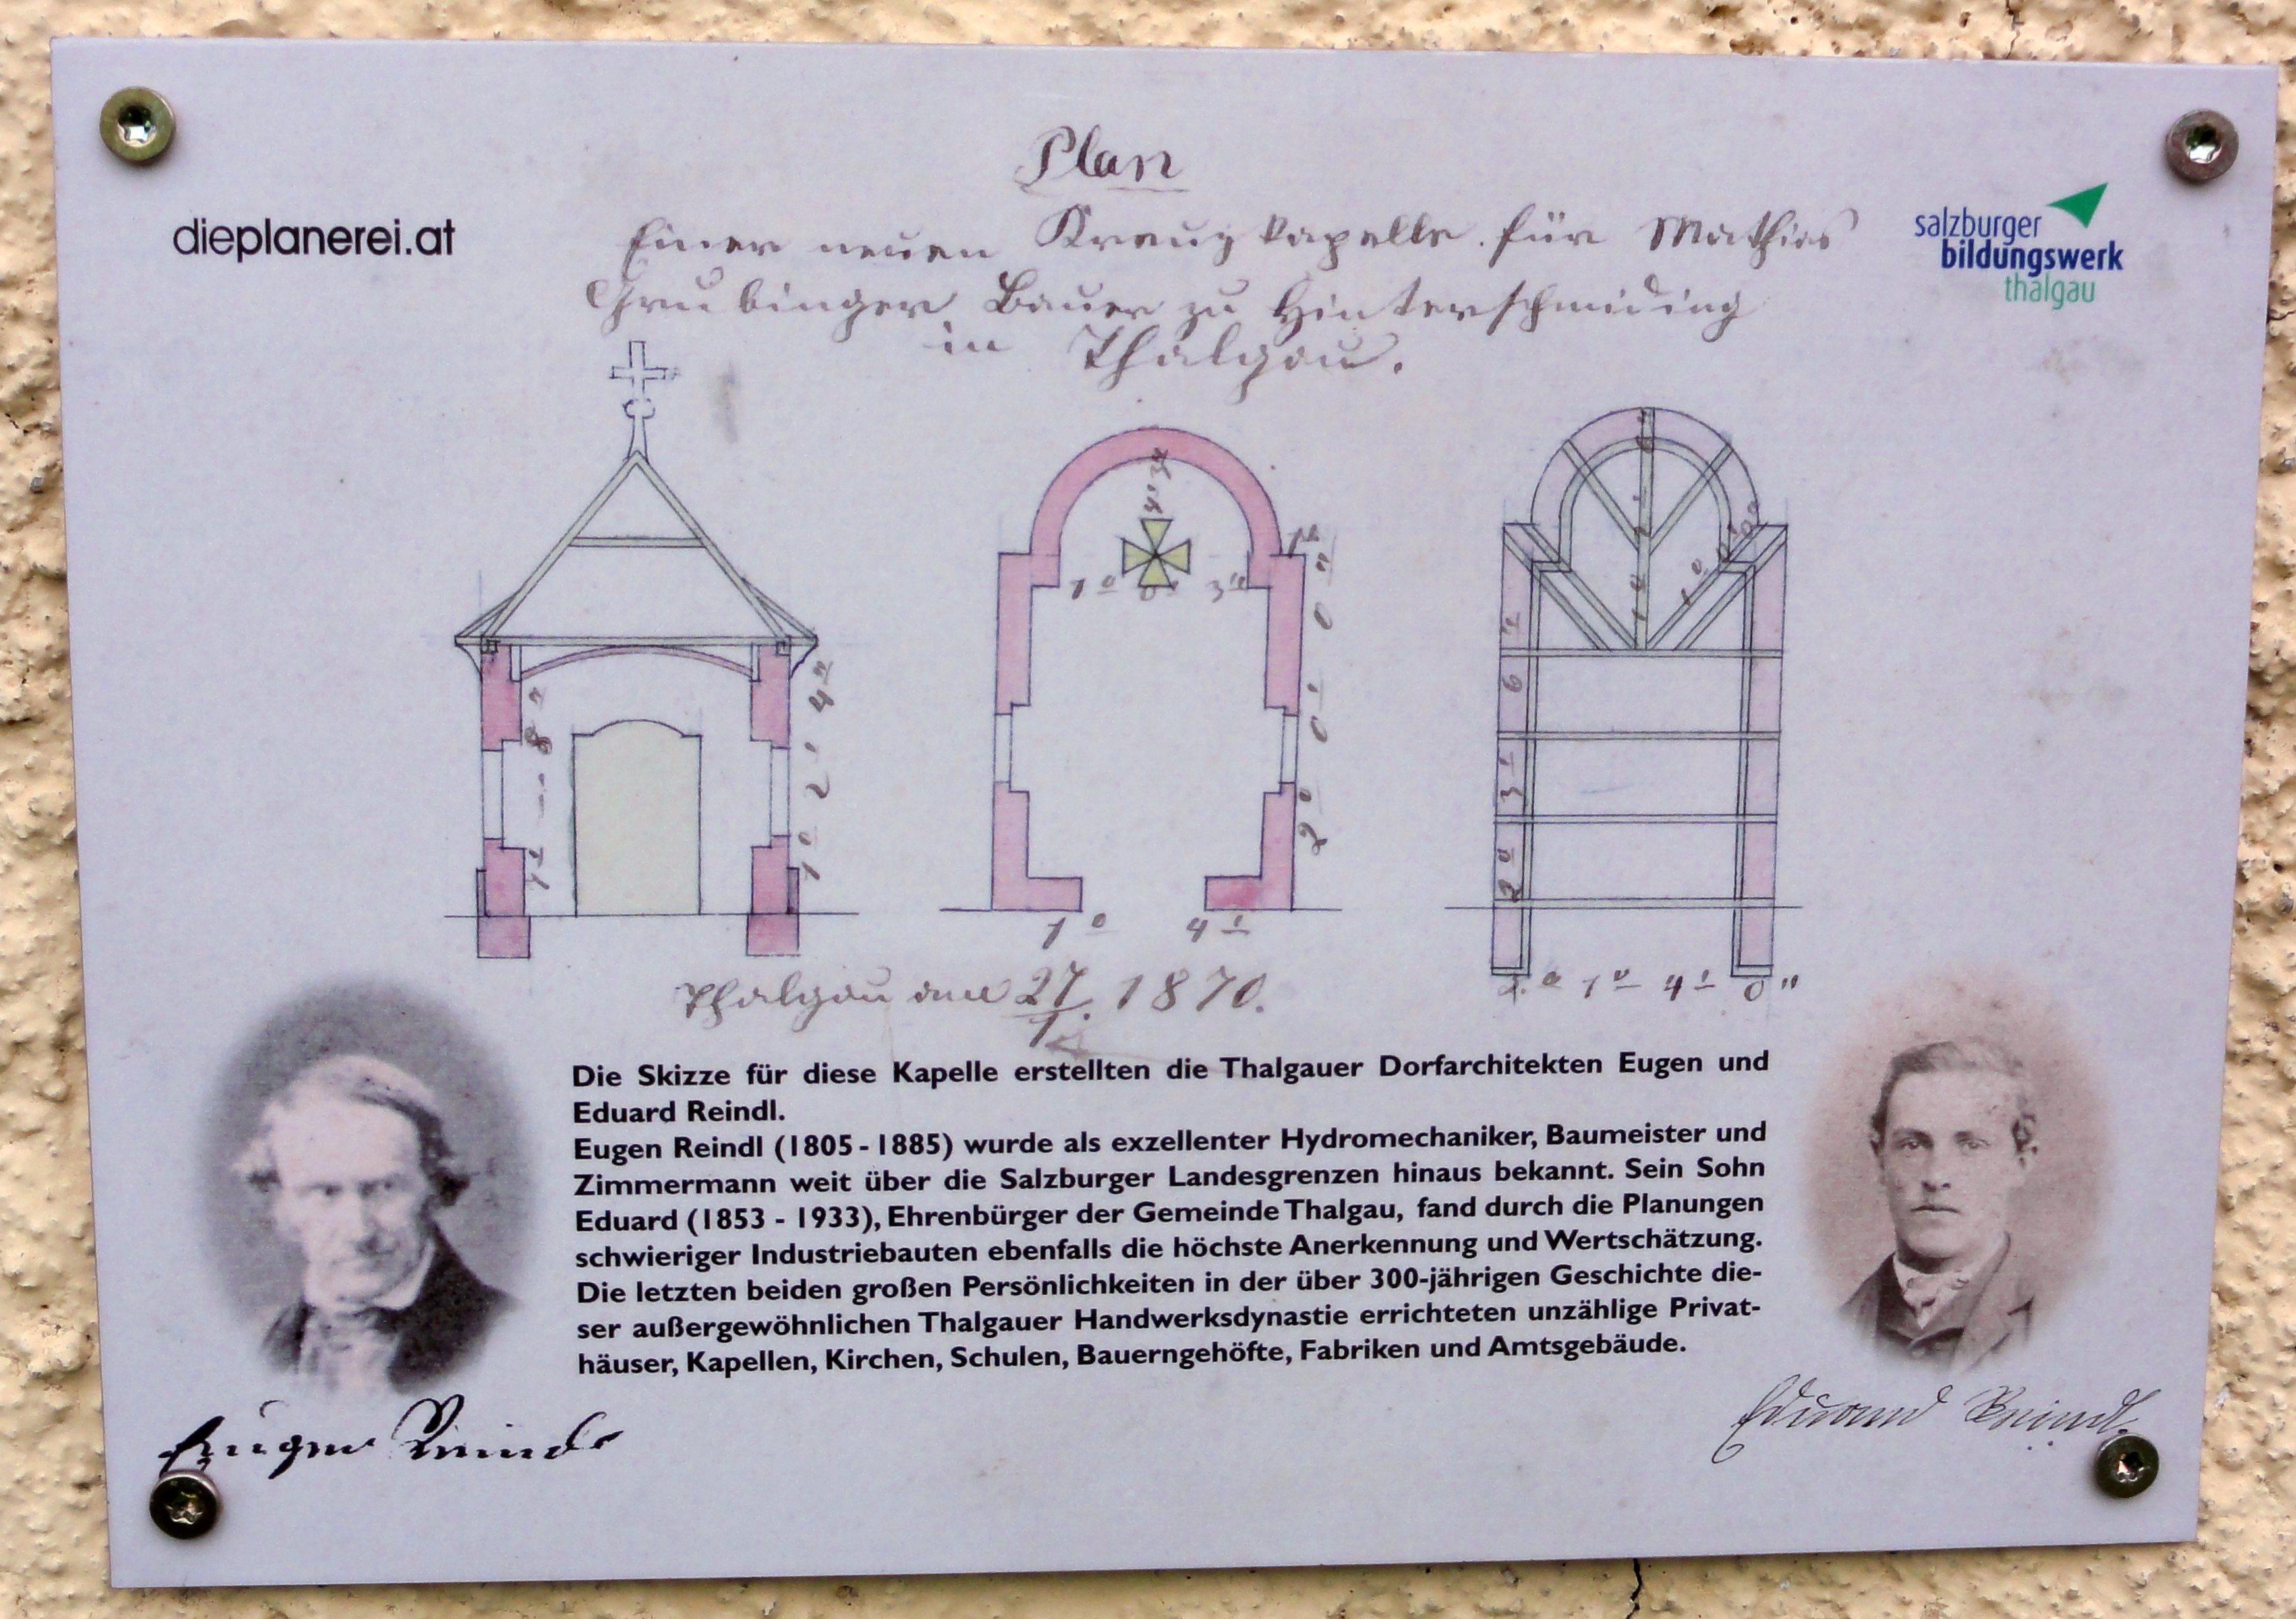 Plan
dieplanerei.at
Einer neuen Kreuzkapelle für Mathias
Grubinger Bauer zu Hinterschmiding
in Thalgau.
salzburger
bildungswerk
thalgau
1° 4'
Thalgau am 27/1. 1870.
Die Skizze für diese Kapelle erstellten die Thalgauer Dorfarchitekten Eugen und
Eduard Reindl.
Eugen Reindl (1805 - 1885) wurde als exzellenter Hydromechaniker, Baumeister und
Zimmermann weit über die Salzburger Landesgrenzen hinaus bekannt. Sein Sohn
Eduard (1853 - 1933), Ehrenbürger der Gemeinde Thalgau, fand durch die Planungen
schwieriger Industriebauten ebenfalls die höchste Anerkennung und Wertschätzung.
Die letzten beiden großen Persönlichkeiten in der über 300-jährigen Geschichte die-
ser außergewöhnlichen Thalgauer Handwerksdynastie errichteten unzählige Privat-
häuser, Kapellen, Kirchen, Schulen, Bauerngehöfte, Fabriken und Amtsgebäude.
Eugen Reindl
Eduard Reindl.